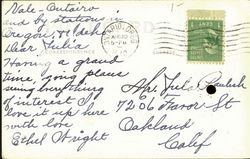 Vale - Ontario
and by stations in
Oregon, & Idaho
Dear Julia
Having a grand
time, going places
seeing everything
of interest. I
love it up here
with love
Ethel Wright
CORRESPONDENCE
Mrs Julia
7206 Favor St
Oakland
Calif
1 CENT 1